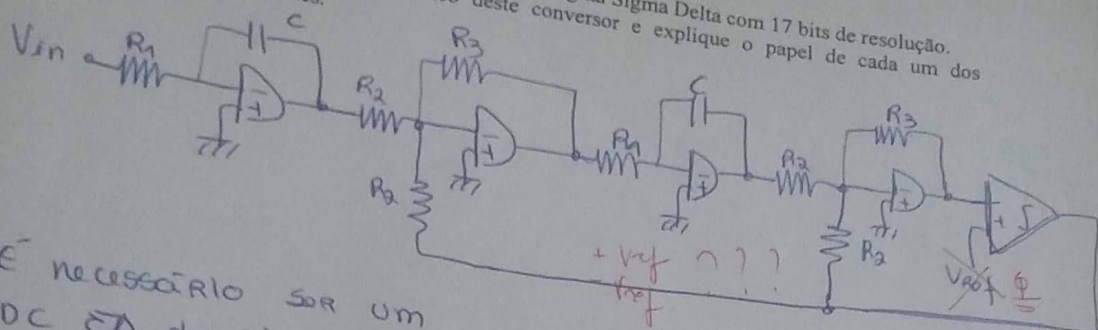 Sigma Delta com 17 bits de resolução.
deste conversor e explique o papel de cada um dos
C
Vin
R1
R3
R2
R2
C
R1
R2
R3
R2
+ Vref ? ? ?
É necessário ser um